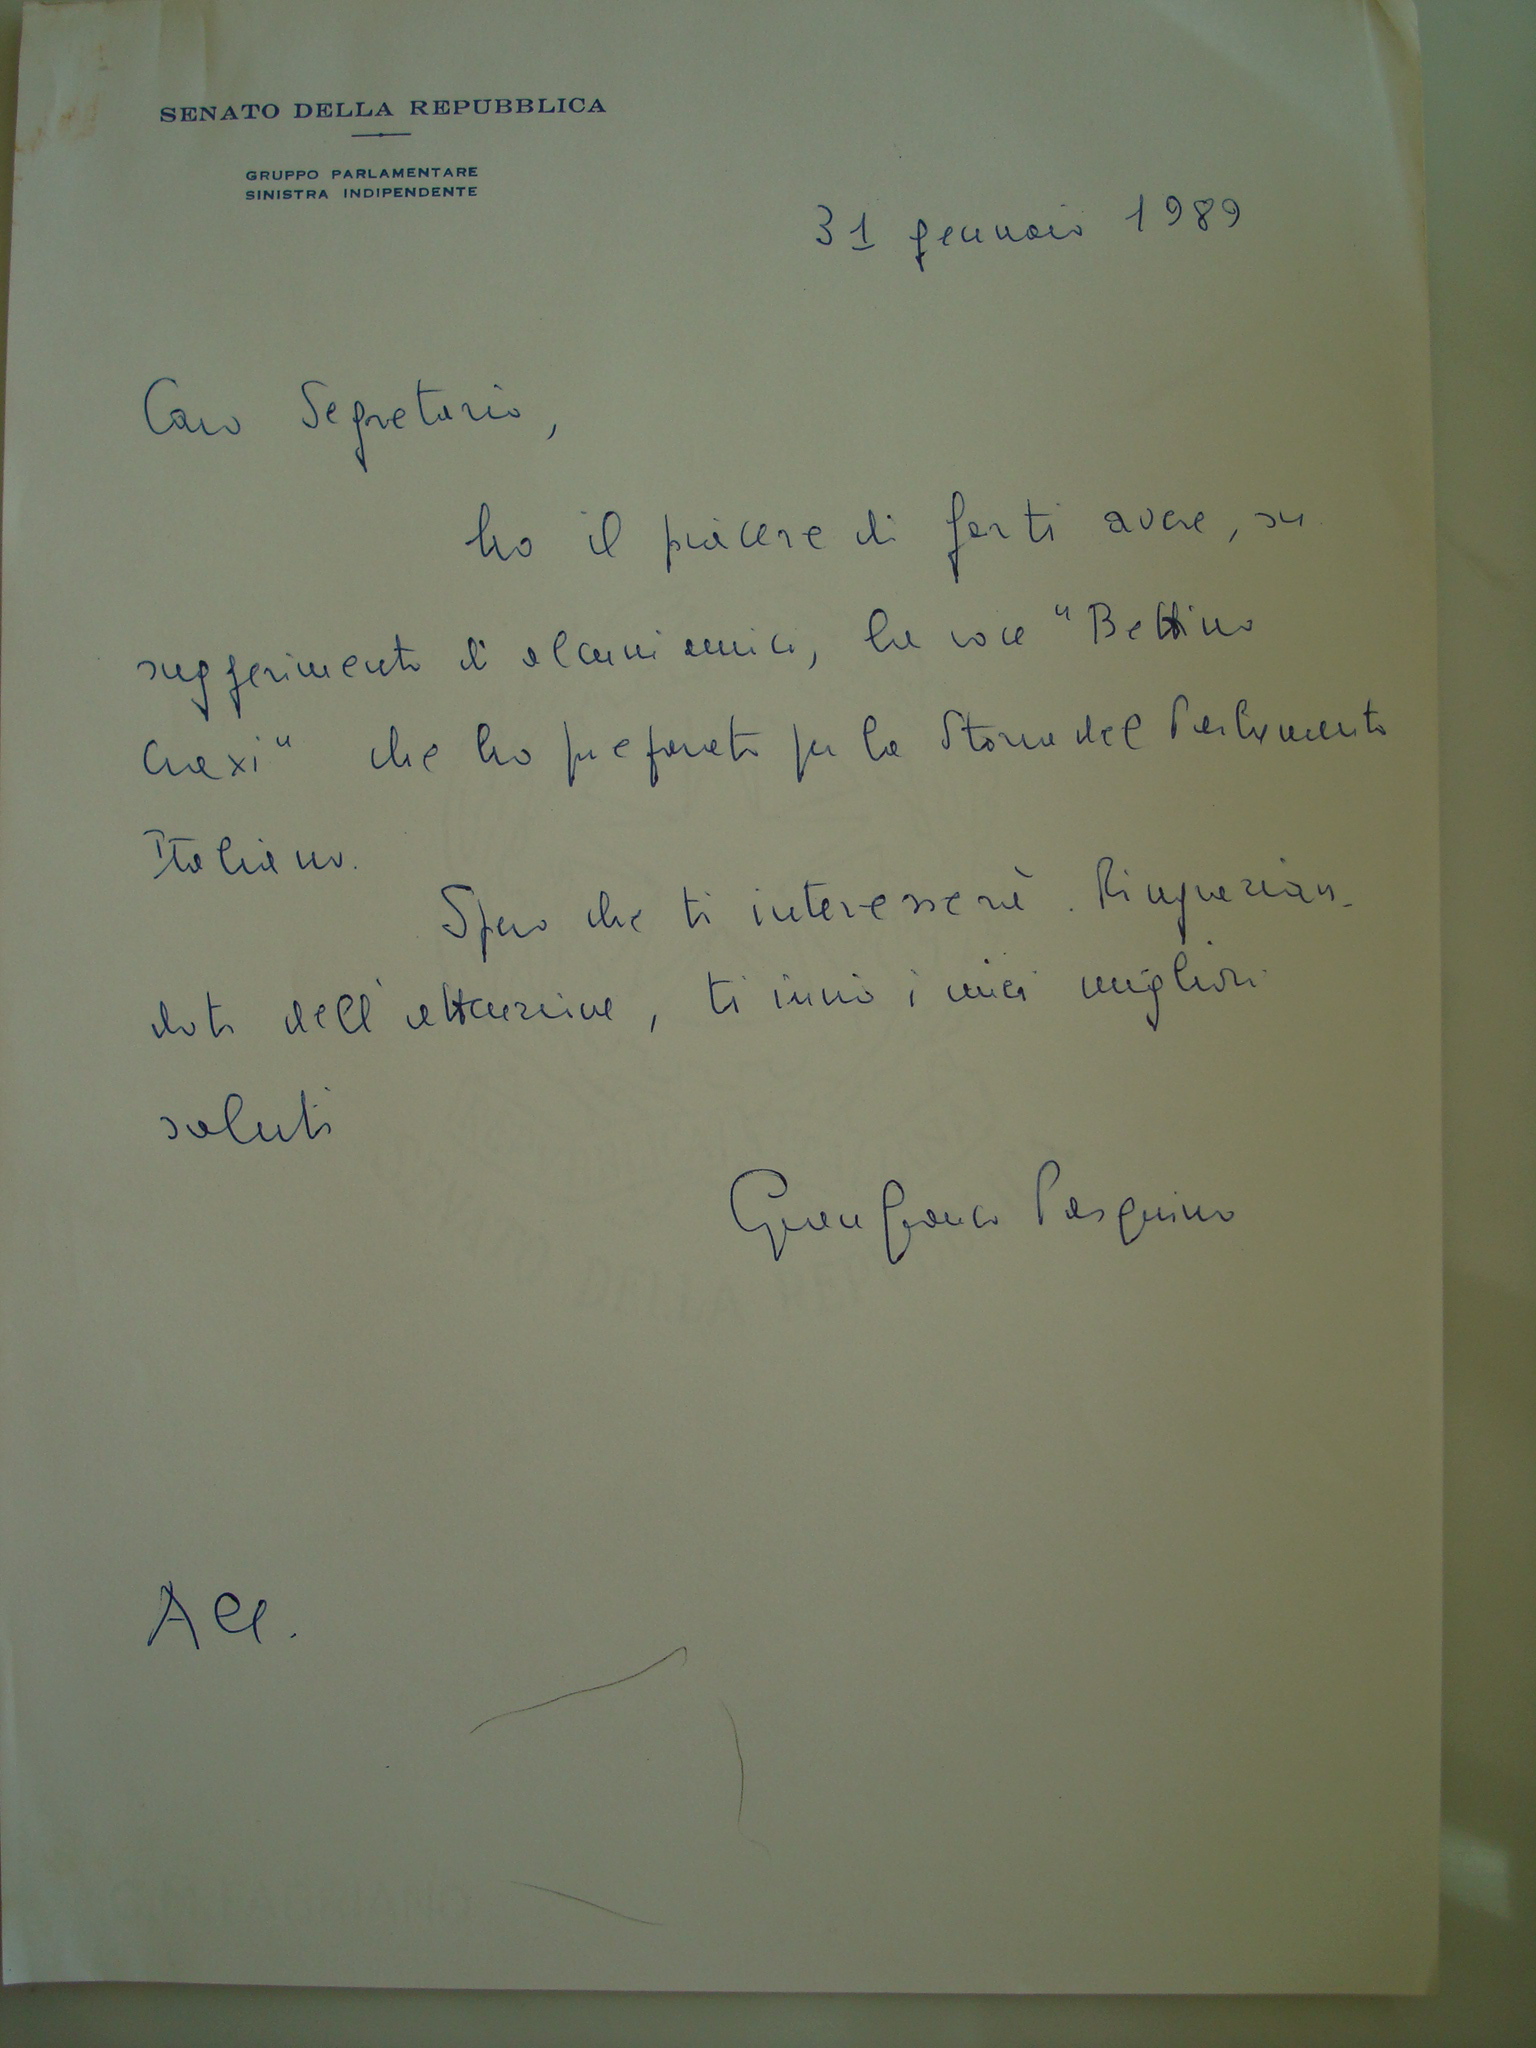 SENATO DELLA REPUBBLICA
GRUPPO PARLAMENTARE
SINISTRA INDIPENDENTE
31 gennaio 1989
Caro Segretario,
ho il piacere di farti avere, su
suggerimento di alcuni amici, la voce "Bettino
Craxi" che ho preparato per la Storia del Parlamento
Italiano.
Spero che ti interesserà. Ringrazian-
doti dell'attenzione, ti invio i miei migliori
saluti
Gianfranco Pasquino
DELLA REPUBBLICA
All.